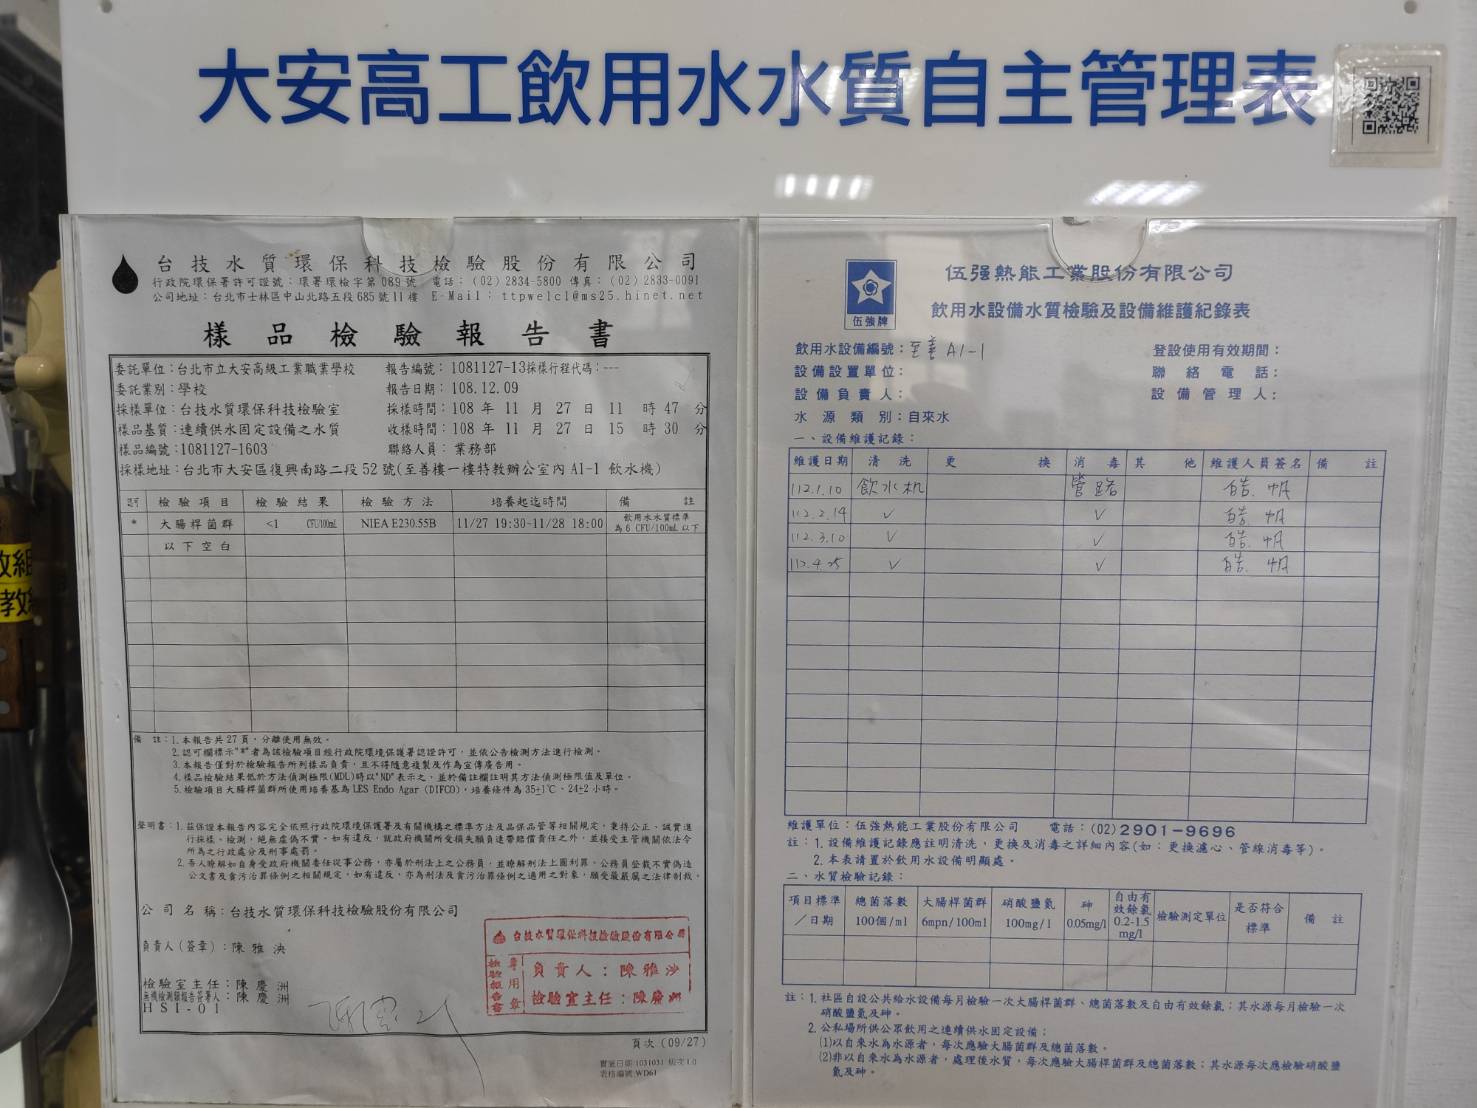 大安高工飲用水水質自主管理表
台技水質環保科技檢驗股份有限公司
行政院環保署許可證號：環署環檢字第089號 電話：(02)2834-5800 傳真：(02)2833-0091
公司地址：台北市士林區中山北路五段685號11樓 E-Mail：ttpwelcl@ms25.hinet.net
樣品檢驗報告書
委託單位：台北市立大安高級工業職業學校 報告編號：1081127-13採樣行程代碼：---
委託業別：學校 報告日期：108.12.09
採樣單位：台技水質環保科技檢驗室 採樣時間：108 年 11 月 27 日 11 時 47 分
樣品基質：連續供水固定設備之水質 收樣時間：108 年 11 月 27 日 15 時 30 分
樣品編號：1081127-1603 聯絡人員：業務部
採樣地址：台北市大安區復興南路二段52號(至善樓一樓特教辦公室內A1-1飲水機)
檢驗項目 檢驗結果 檢驗方法 培養起迄時間 備註
* 大腸桿菌群 <1 CFU/100mL NIEA E230.55B 11/27 19:30~11/28 18:00 飲用水水質標準
為6 CFU/100mL以下
以下空白
備 註：1.本報告共27頁，分離使用無效。
2.認可欄標示"*"者為該檢驗項目經行政院環境保護署認證許可，並依公告檢測方法進行檢測。
3.本報告僅對於檢驗報告所列樣品負責，且不得隨意複製及作為宣傳廣告用。
4.樣品檢驗結果低於方法偵測極限(MDL)時以"ND"表示之，並於備註欄註明其方法偵測極限值及單位。
5.檢驗項目大腸桿菌群所使用培養基為LES Endo Agar (DIFCO)，培養條件為35±1℃、24±2小時。
聲明書：1.茲保證本報告內容完全依照行政院環境保護署及有關機構之標準方法及品保品管等相關規定，秉持公正、誠實進
行採樣、檢測。絕無虛偽不實，如有違反，就政府機關所受損失願負連帶賠償責任之外，並接受主管機關依法令
所為之行政處分及刑事處罰。
2.吾人瞭解如自身受政府機關委任從事公務，亦屬於刑法上之公務員，並瞭解刑法上圖利罪、公務員登載不實偽造
公文書及貪污治罪條例之相關規定，如有違反，亦為刑法及貪污治罪條例之適用之對象，願受最嚴厲之法律制裁。
公司名稱：台技水質環保科技檢驗股份有限公司
負責人(簽章)：陳雅泱
檢驗室主任：陳慶洲
無機檢測類報告簽署人：陳慶洲
HSI-01
台技水質環保科技檢驗股份有限公司
檢驗報告書專用章
負責人：陳雅沙
檢驗室主任：陳慶洲
頁次 (09/27)
實施日期:1031031 版次1.0
表格編號:WD61
伍強牌
伍强熱能工業股份有限公司
飲用水設備水質檢驗及設備維護紀錄表
飲用水設備編號：至善 A1-1 登設使用有效期間：
設備設置單位： 聯絡電話：
設備負責人： 設備管理人：
水源類別：自來水
一、設備維護記錄：
維護日期 清洗 更換 消毒 其他 維護人員簽名 備註
112.1.10 飲水机 管路 皓.帆
112.2.14 ✓ ✓ 皓.帆
112.3.10 ✓ ✓ 皓.帆
112.4.25 ✓ ✓ 皓.帆
維護單位：伍強熱能工業股份有限公司 電話：(02)2901-9696
註：1.設備維護記錄應註明清洗，更換及消毒之詳細內容(如：更換濾心、管線消毒等)。
2.本表請置於飲用水設備明顯處。
二、水質檢驗記錄：
項目標準／日期 總菌落數 100個/ml 大腸桿菌群 6mpn/100ml 硝酸鹽氮 100mg/l 砷 0.05mg/l 自由有效餘氯 0.2-1.5 mg/l 檢驗測定單位 是否符合標準 備註
註：1.社區自設公共給水設備每月檢驗一次大腸桿菌群、總菌落數及自由有效餘氯；其水源每月檢驗一次
硝酸鹽氮及砷。
2.公私場所供公眾飲用之連續供水固定設備；
(1)以自來水為水源者，每次應驗大腸菌群及總菌落數。
(2)非以自來水為水源者，處理後水質，每次應驗大腸桿菌群及總菌落數；其水源每次應檢驗硝酸鹽
氮及砷。